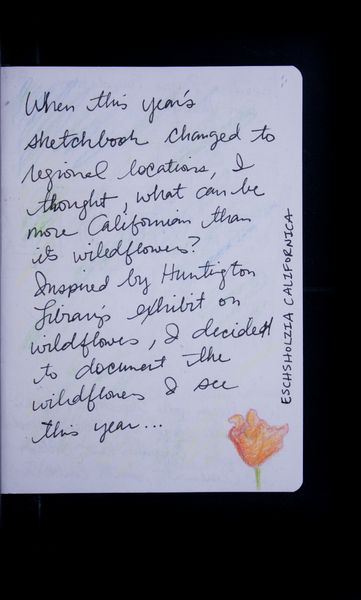 When this year's
sketchbook changed to
regional locations, I
thought, what can be
more Californian than
its wildflowers?
Inspired by Huntington
Library's exhibit on
wildflowers, I decided
to document the
wildflowers I see
this year...
ESCHSHOLZIA CALIFORNICA